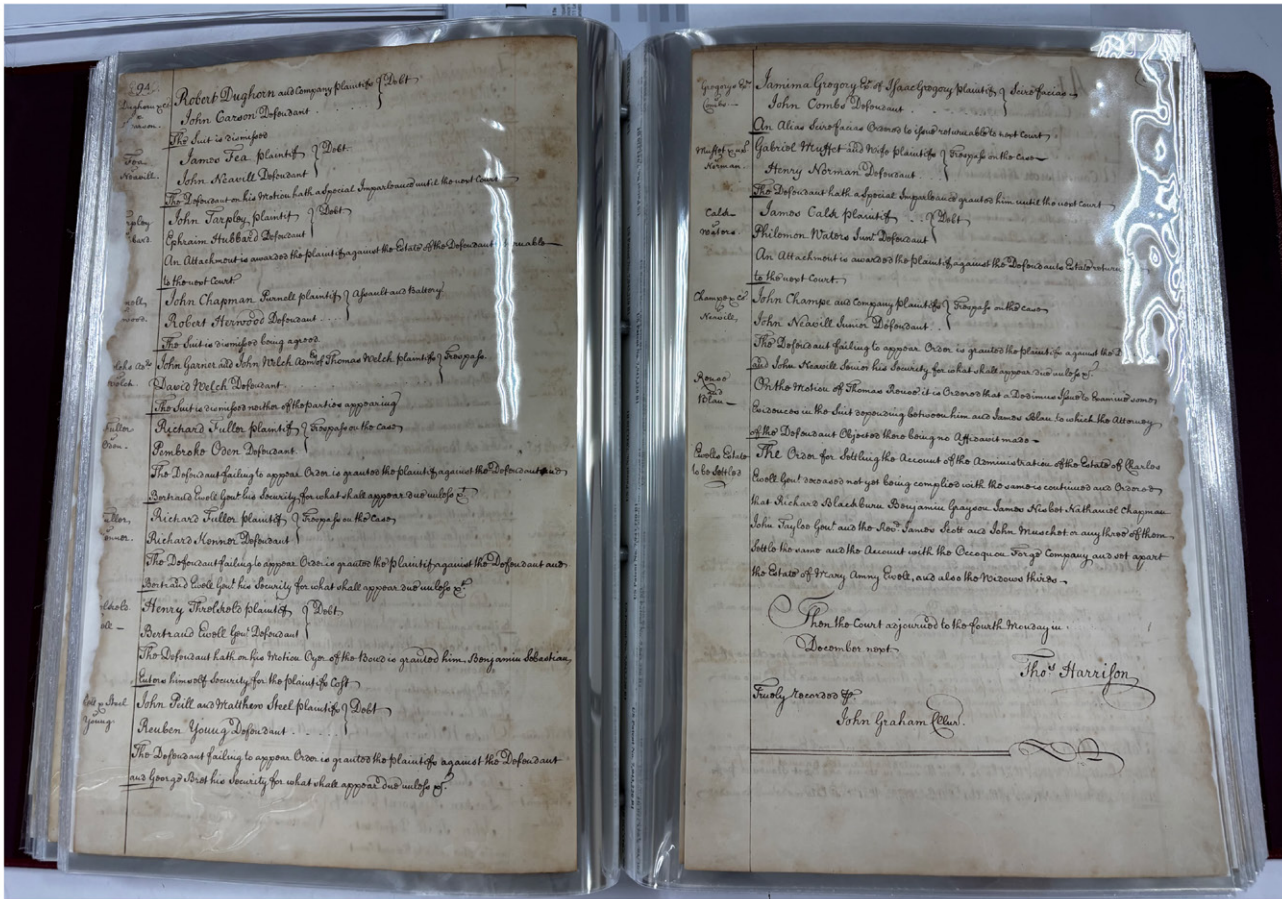 94
Dughorn & Co
Carson.
Robert Dughorn and Company plaintifs } Debt
John Carson Defendant . . . .
The Suit is dismissed
Fea
Neavill.
James Fea plaintif } Debt.
John Neavill Defendant
The Defendant on his Motion hath a Special Imparlance until the next Court
John Tarpley plaintif } Debt
Ephraim Hubbard Defendant
An Attachment is awarded the plaintif against the Estate of the Defendant
to the next Court.
John Chapman Purnell plaintif } Assault and Battery
Robert Herwood Defendant . . . .
The Suit is dismissed being agreed
Welch.
John Garner and John Welch Admrs of Thomas Welch plaintifs } Trespass.
David Welch Defendant
The Suit is dismissed neither of the parties appearing
Fuller
Oden.
Richard Fuller plaintif } Trespass on the Case
Pembroke Oden Defendant.
The Defendant failing to appear Order is granted the plaintif against the Defendant and
Bertrand Ewell Gent his Security for what shall appear due unless &c.
Richard Fuller plaintif } Trespass on the Case
Richard Kenner Defendant
The Defendant failing to appear Order is granted the plaintif against the Defendant and
Bertrand Ewell Gent his Security for what shall appear due unless &c.
Henry Threlkeld plaintif } Debt
Bertrand Ewell Gent Defendant
The Defendant hath on his Motion Oyer of the Bond is granted him, Benjamin Sebastian,
Enters himself Security for the plaintifs Cost
& Steel
Young.
John Peill and Matthew Steel plaintifs } Debt
Reuben Young Defendant . . . .
The Defendant failing to appear Order is granted the plaintifs against the Defendant
and George Bret his Security for what shall appear due unless &c.
Gregorys Exr.
Combs
Jamima Gregory Ex. of Isaac Gregory plaintif } Scire facias
John Combs Defendant
An Alias Scire facias Ordered to issue returnable to next Court
Muffet & ux
Norman.
Gabriel Muffet and Wife plaintifs } Trespass on the Case
Henry Norman Defendant . . . .
The Defendant hath a Special Imparlance granted him until the next Court
Calds
Waters
James Calds plaintif . . . . } Debt
Philemon Waters Junr. Defendant
An Attachment is awarded the plaintif against the Defendants Estate return
to the next Court.
Champe & Co
Neavill,
John Champe and Company plaintifs } Trespass on the case
John Neavill Junior Defendant.
The Defendant failing to appear Order is granted the plaintifs against the D
and John Neavill Senior his Security for what shall appear due unless &c.
Rouse
and
Blau
On the Motion of Thomas Rouse it is Ordered that a Dedimus issue to Examine some
Evidences in the Suit depending between him and James Blau to which the Attorney
of the Defendant Objected there being no Affidavit made
Ewells Estate
to be Settled
The Order for Settling the Account of the Administration of the Estate of Charles
Ewell Gent. deceased not yet being complied with the same is continued and Ordered
that Richard Blackburn Benjamin Grayson James Nisbet Nathaniel Chapman
John Tayloe Gent. and the Revd. James Scott and John Muschet or any three of them
Settle the same and the Account with the Occoquon Forge Company and set apart
the Estate of Mary Amny Ewell, and also the Widows thirds
Then the Court adjourned to the fourth Monday in
December next
Thos. Harrison
Truely recorded
John Graham Clcur.